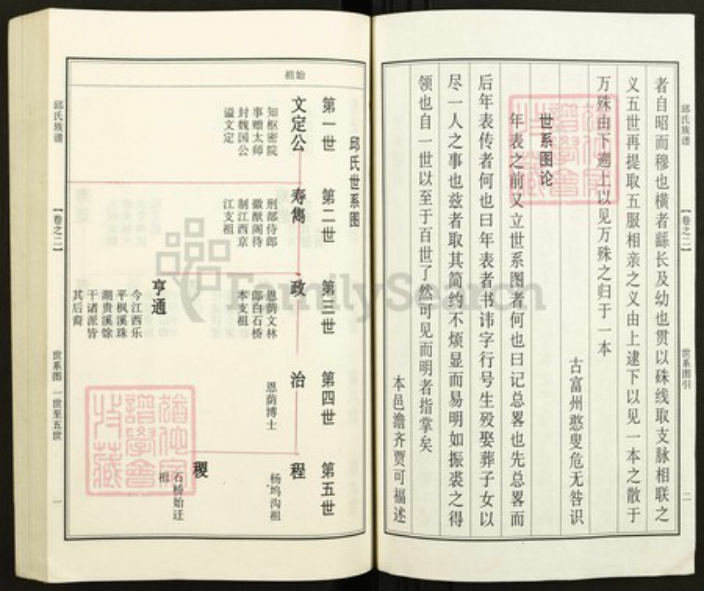 邱氏族谱
【卷之二】
世系图引
二
者自昭而穆也横者繇长及幼也贯以硃线取支脉相联之
义五世再提取五服相亲之义由上逮下以见一本之散于
万殊由下遡上以见万殊之归于一本
古富州憨叟危无咎识
世系图论
年表之前又立世系图者何也曰记总畧也先总畧而
后年表传者何也曰年表者书讳字行号生殁娶葬子女以
尽一人之事也兹者取其简约不烦显而易明如振裘之得
领也自一世以至于百世了然可见而明者指掌矣
本邑澹齐贾可福述
邱氏世系图
始祖
第一世
第二世
第三世
第四世
第五世
文定公
知枢密院
事赠太师
封魏国公
谥文定
寿隽
刑部侍郎
徽猷阁待
制江西京
江支祖
政
恩荫文林
郎白石桥
本支祖
治
恩荫博士
程
杨坞沟祖
亨通
今江西乐
平枫溪珠
湖贵溪馀
干诸派皆
其后裔
稷
石桥始迁
祖
邱氏族谱
【卷之二】
世系图 一世至五世
一
FamilySearch